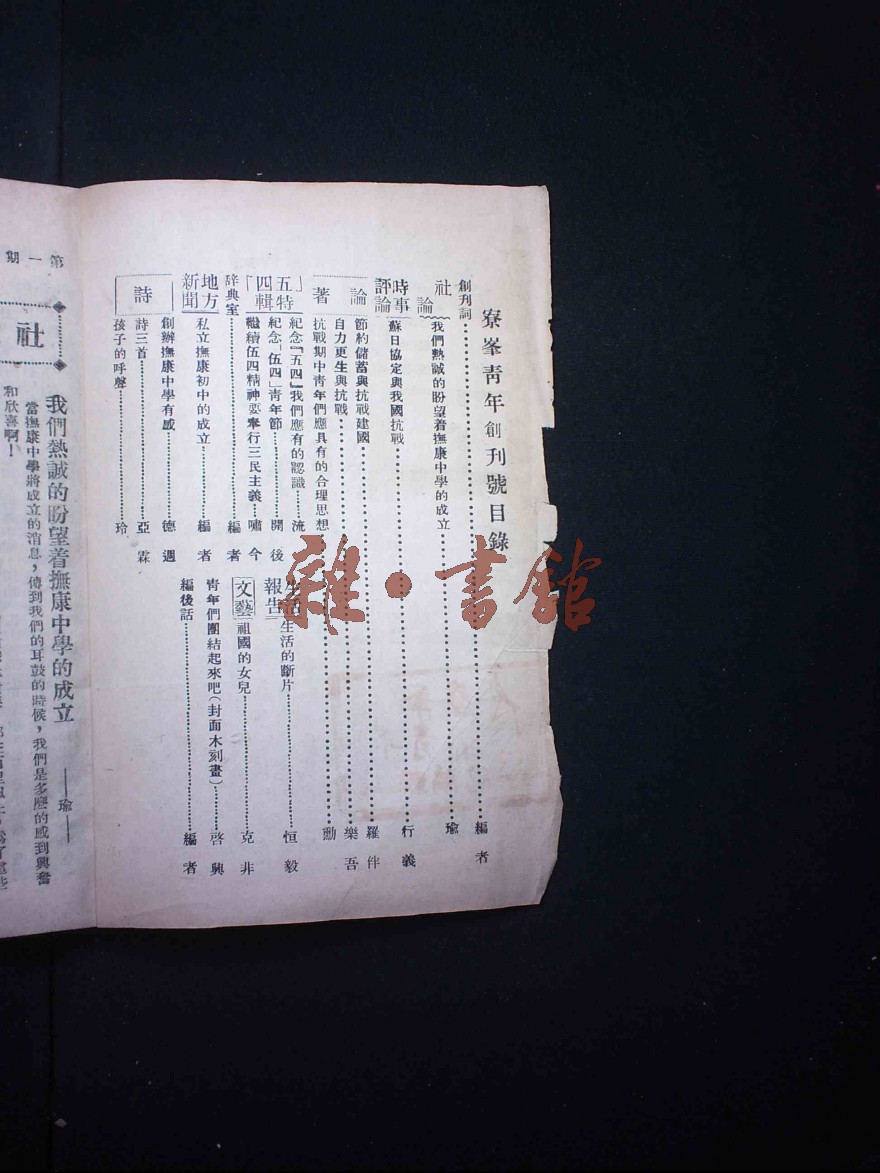 寮峯靑年創刊號目錄
創刊詞……編者
社論
我們熱誠的盼望着撫康中學的成立……瑜
時事評論
蘇日協定與我國抗戰……行義
論著
節約儲蓄與抗戰建國……羅伴
自力更生與抗戰……樂吾
抗戰期中靑年們應具有的合理思想……勳
「五四」特輯
紀念『五四』我們應有的認識……流
紀念「伍四」靑年節……開後
繼續伍四精神要奉行三民主義……嘯今
辞典室……編者
地方新聞
私立撫康初中的成立……編者
詩
創辦撫康中學有感……德週
詩三首……亞霖
孩子的呼聲……玲
生活報告
生活的斷片……恒毅
文藝
祖國的女兒……克非
靑年們團結起來吧(封面木刻畫)……啓興
編後話……編者
第一期
社
我們熱誠的盼望着撫康中學的成立
——瑜——
當撫康中學將成立的消息，傳到我們的耳鼓的時候，我們是多麽的感到興奮
和欣喜啊！
雜·書館